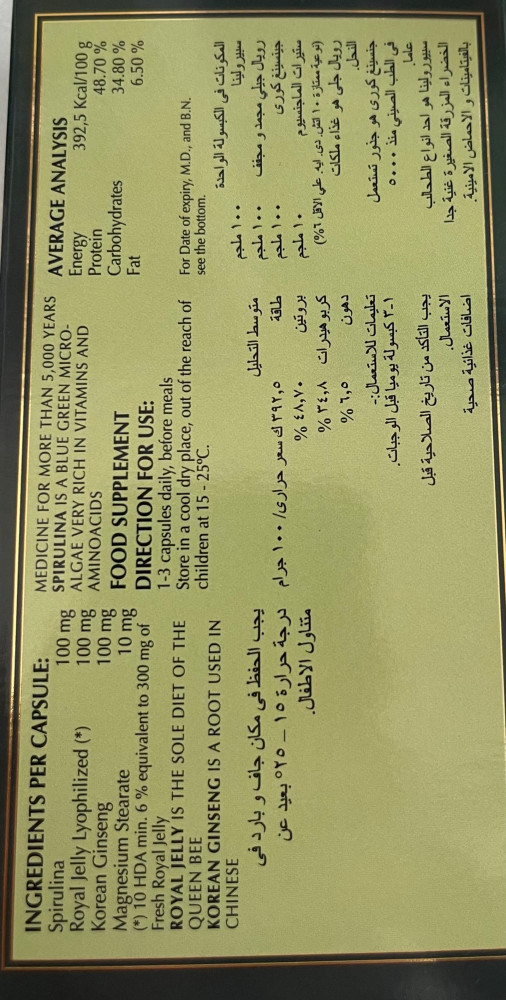 INGREDIENTS PER CAPSULE:
Spirulina 100 mg
Royal Jelly Lyophilized (*) 100 mg
Korean Ginseng 100 mg
Magnesium Stearate 10 mg
(*) 10 HDA min. 6 % equivalent to 300 mg of
Fresh Royal Jelly
ROYAL JELLY IS THE SOLE DIET OF THE
QUEEN BEE
KOREAN GINSENG IS A ROOT USED IN
CHINESE
MEDICINE FOR MORE THAN 5,000 YEARS
SPIRULINA IS A BLUE GREEN MICRO-
ALGAE VERY RICH IN VITAMINS AND
AMINOACIDS
FOOD SUPPLEMENT
DIRECTION FOR USE:
1-3 capsules daily, before meals
Store in a cool dry place, out of the reach of
children at 15 - 25°C.
AVERAGE ANALYSIS
Energy 392,5 Kcal/100 g
Protein 48.70 %
Carbohydrates 34.80 %
Fat 6.50 %
For Date of expiry, M.D., and B.N.
see the bottom.
المكونات في الكبسولة الواحدة
سبيرولينا ١٠٠ ملجم
رويال جيلي مجمد و مجفف ١٠٠ ملجم
جينسينغ كوري ١٠٠ ملجم
ستيرات الماجنسيوم ١٠ ملجم
(نوعية ممتازة ١٠ اتش. دي. ايه. علي الاقل ٦%)
رويال جلي هو غذاء ملكات
النحل.
جنسينغ كوري هو جذور تستعمل
في الطب الصيني منذ ٥٠٠٠
عاما
سبيورولينا هو احد انواع الطحالب
الخضراء المزرقة الصغيرة غنية جدا
بالفيتامينات و الاحماض الامينية.
متوسط التحليل
طاقة ٣٩٢,٥ ك سعر حراري/ ١٠٠ جرام
بروتين ٤٨,٧٠ %
كربوهيدرات ٣٤,٨ %
دهون ٦,٥ %
تعليمات للاستعمال:-
١-٣ كبسولة يوميا قبل الوجبات.
يجب التاكد من تاريخ الصلاحية قبل
الاستعمال.
اضافات غذائية صحية
يجب الحفظ في مكان جاف و بارد في
درجة حرارة ١٥ – ٢٥° بعيد عن
متناول الاطفال.